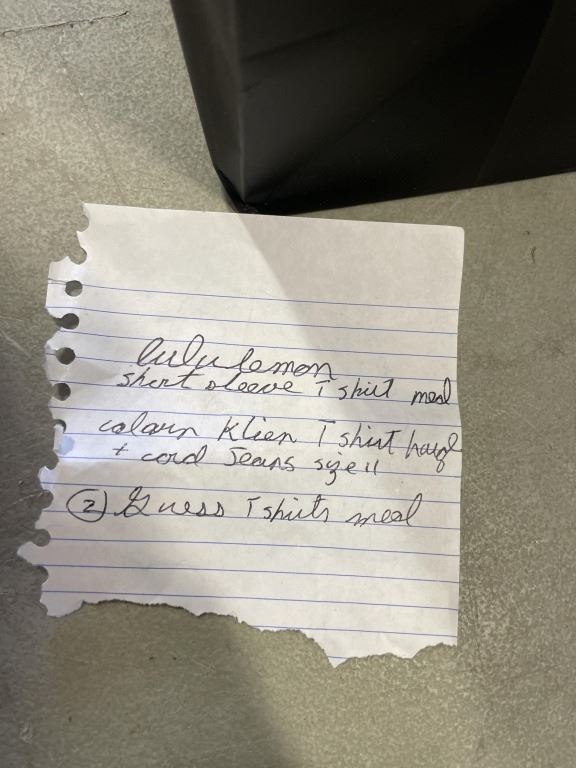 lululemon
short sleeve T shirt med
calavin Klien T shirt
+ cord Jeans size 11
② Guess Tshirts med